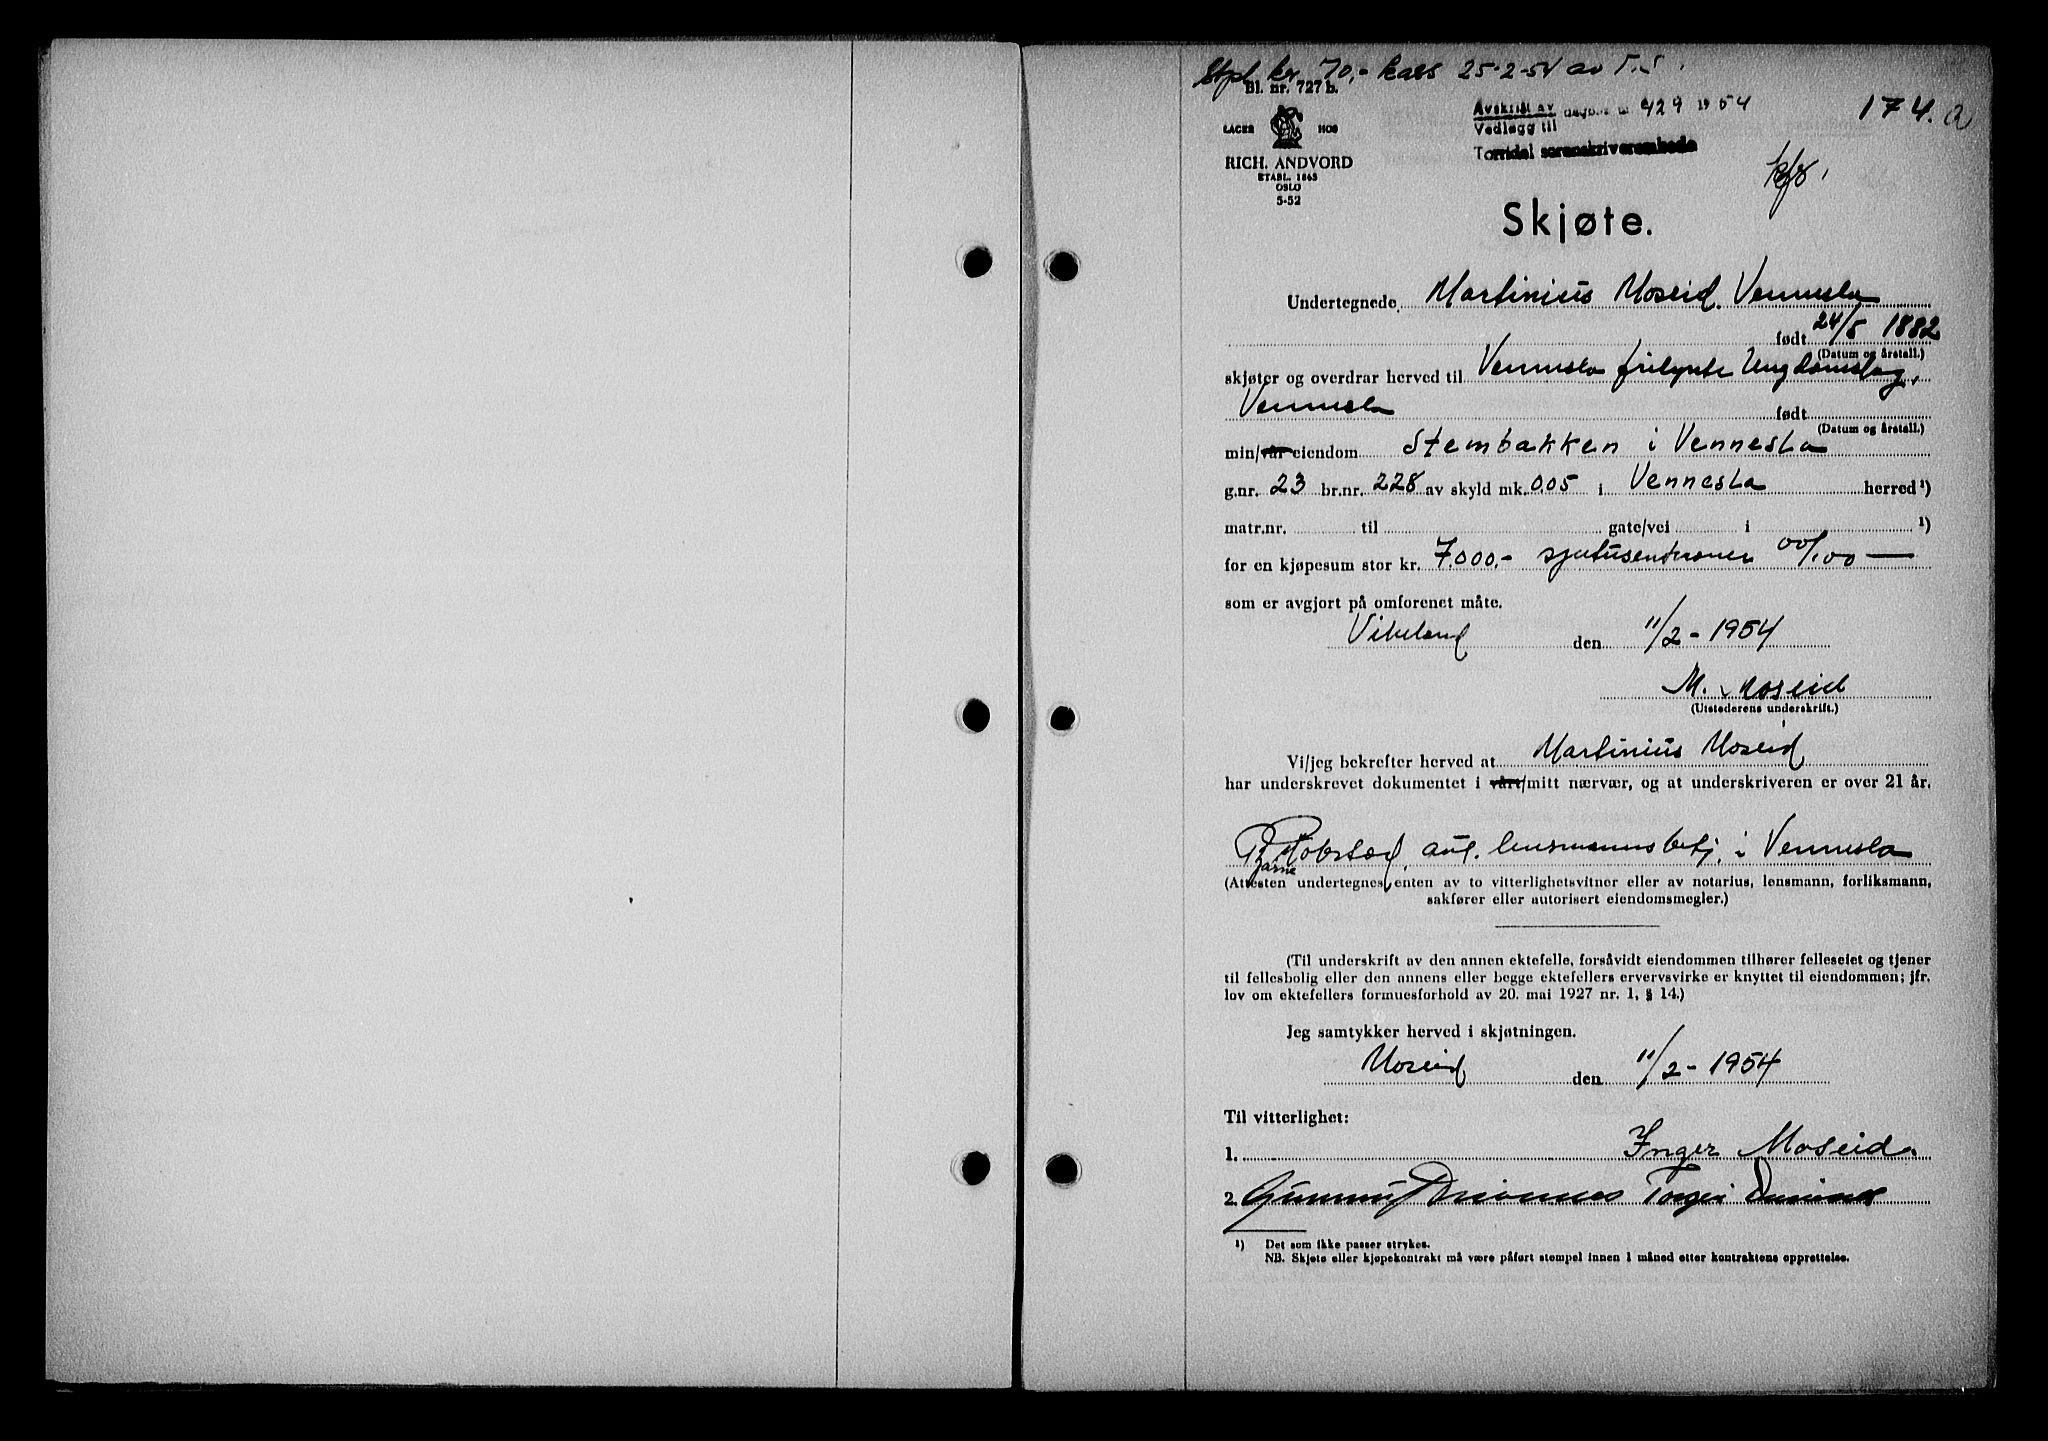 Stpl. kr. 70,- kass 25-2-54 av T.S.
Bl. nr. 727 b.
LAGER HOS
RICH. ANDVORD
ETABL. 1865
OSLO
5-52
Avskrift av dagbok nr 429 1954
Vedlegg til
Torridal sorenskriverembede
174. a
kfr.
Skjøte.
Undertegnede Martinius Moseid. Vennesla
født 24/8 1882
(Datum og årstall.)
skjøter og overdrar herved til Vennesla frilynte Ungdomslag,
Vennesla født
(Datum og årstall.)
min/vår eiendom Stembakken i Vennesla
g.nr. 23 br.nr. 228 av skyld mk. 0.05 i Vennesla herred ¹)
matr.nr. til gate/vei i ¹)
for en kjøpesum stor kr. 7.000.- sjutusenkroner 00/100 —
som er avgjort på omforenet måte.
Vikeland den 11/2 - 1954
M. Moseid
(Utstederens underskrift.)
Vi/jeg bekrefter herved at Martinius Moseid
har underskrevet dokumentet i vårt/mitt nærvær, og at underskriveren er over 21 år.
Bjarne Robstad, aut. lensmannsbetj. i Vennesla
(Attesten undertegnes enten av to vitterlighetsvitner eller av notarius, lensmann, forliksmann,
sakfører eller autorisert eiendomsmegler.)
(Til underskrift av den annen ektefelle, forsåvidt eiendommen tilhører felleseiet og tjener
til fellesbolig eller den annens eller begge ektefellers ervervsvirke er knyttet til eiendommen; jfr.
lov om ektefellers formuesforhold av 20. mai 1927 nr. 1, § 14.)
Jeg samtykker herved i skjøtningen.
Moseid den 11/2 - 1954
Til vitterlighet:
1. Inger Moseid.
2.
¹) Det som ikke passer strykes.
NB. Skjøte eller kjøpekontrakt må være påført stempel innen 1 måned etter kontraktens opprettelse.